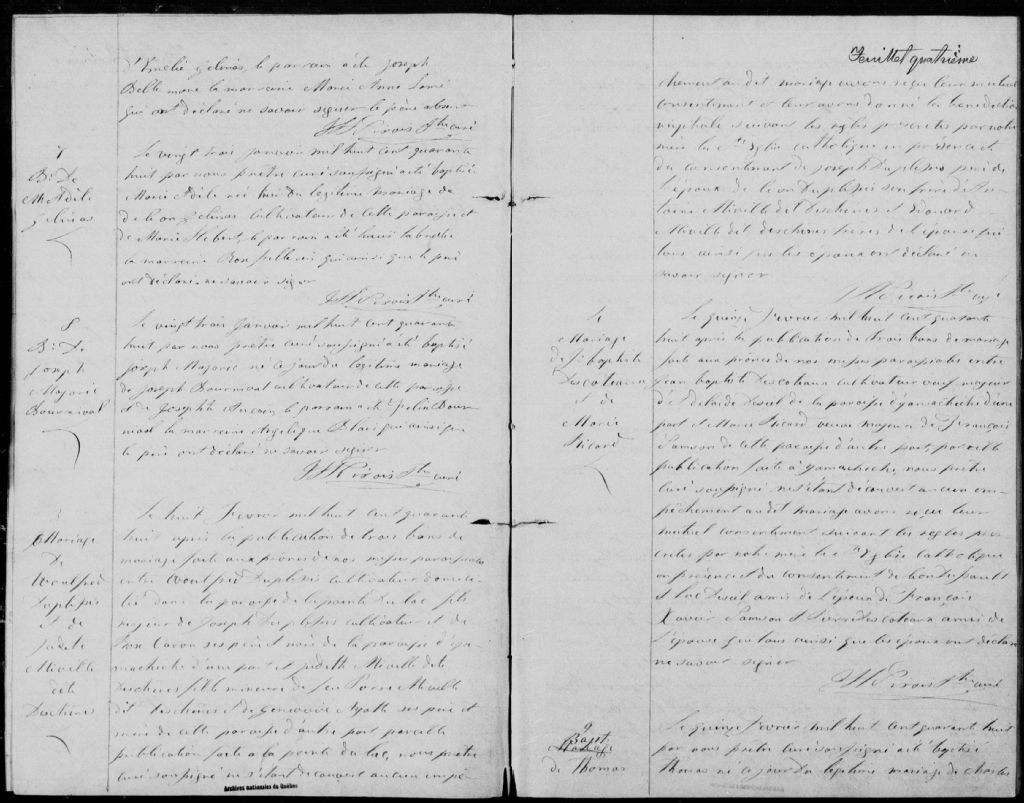 d'Emelie Gelinas, le parrain a été Joseph
Bellemare la marraine Marie Anne
qui ont déclaré ne savoir signer le père absent
JH Sirois Ptre curé
7
B: De
M. Adèle
Gelinas
Le vingt trois Janvier mil huit cent quarante
huit par nous prêtre curé soussigné a été baptisé
Marie Adèle née hier du légitime mariage de
de Léon Gelinas cultivateur de cette paroisse et
de Marie Hebert, le parrain a été
la marraine qui ainsi que le père
ont déclaré ne savoir signer
JH Sirois Ptre curé
8
B: De
Joseph
Majoric
Bournival
Le vingt trois Janvier mil huit cent quarante
huit par nous prêtre curé soussigné a été baptisé
Joseph Majoric né ce jour du légitime mariage
de Joseph Bournival cultivateur de cette paroisse
et de Josephte le parrain a été Bour-
nival la marraine Angelique Blais qui ainsi que
le père ont déclaré ne savoir signer
JH Sirois Ptre curé
3
Mariage
De
Duplessis
et de
Judith
Miville
dite
Deschenes
Le huit Fevrier mil huit cent quarante
huit après la publication de trois bans de
mariage faite aux prônes de nos messes paroissiales
entre Duplessis cultivateur domici-
lié dans la paroisse de la pointe du lac fils
majeur de Joseph Duplessis cultivateur et de
Rose Caron ses père et mère de la paroisse d'ya-
machiche d'une part et Judith Miville dite
Deschenes fille mineure de feu Pierre Miville
dit Deschenes et de Genevieve Ayotte ses père et
mère de cette paroisse d'autre part pareille
publication faite à la pointe du lac, nous prêtre
curé soussigné ne s'étant découvert aucun empê-
Archives nationales du Québec
Feuillet quatrième
chement au dit mariage avons reçu leur mutuel
consentement et leur avons donné la bénédiction
nuptiale suivant les règles prescrites par notre
mère la Ste Eglise catholique en présence et
du consentement de Joseph Duplessis père de
l'époux de Léon Duplessis son frère de
Miville dit Deschenes et Edouard
Miville dit Deschenes frères de l'épouse qui
tous ainsi que les époux ont déclaré ne
savoir signer
JH Sirois Ptre curé
4
Mariage
de Jn baptiste
Descoteaux
et de
Marie
Ricard
Le quinze Fevrier mil huit cent quarante
huit après la publication de trois bans de mariage
faite aux prônes de nos messes paroissiales entre
Jean baptiste Descoteaux cultivateur veuf majeur
d'Adelaide de la paroisse d'yamachiche d'une
part et Marie Ricard veuve majeure de François
Samson de cette paroisse d'autre part, pareille
publication faite à Yamachiche, nous prêtre
curé soussigné ne s'étant découvert aucun em-
pêchement au dit mariage avons reçu leur
mutuel consentement suivant les règles pres-
crites par notre mère la Ste Eglise Catholique
en présence et du consentement de
et amis de l'époux de François
Xavier Samson et Pierre Descoteaux amis de
l'épouse qui tous ainsi que les époux ont déclaré
ne savoir signer
JH Sirois Ptre curé
9
Bapt.
Mariage
de Thomas
Le quinze Fevrier mil huit cent quarante huit
par nous prêtre curé soussigné a été baptisé
Thomas né ce jour du légitime mariage de Charles